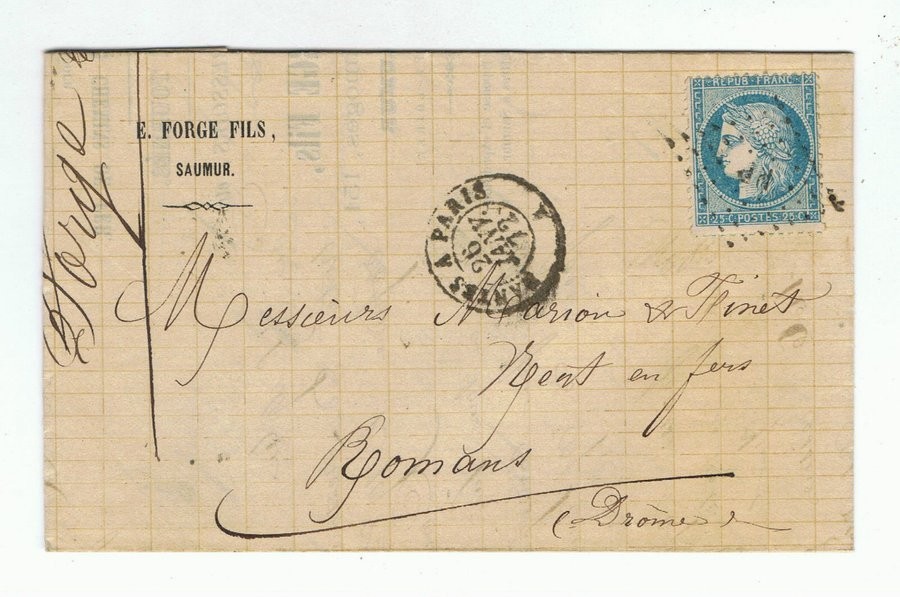 Forge
E. FORGE FILS,
SAUMUR.
REPUB. FRANC.
25·C·POSTES·25·C
NANTES A PARIS
A
26
JANV.
72
Messieurs Marion & Finet
Negt en fers
Romans
(Drôme)